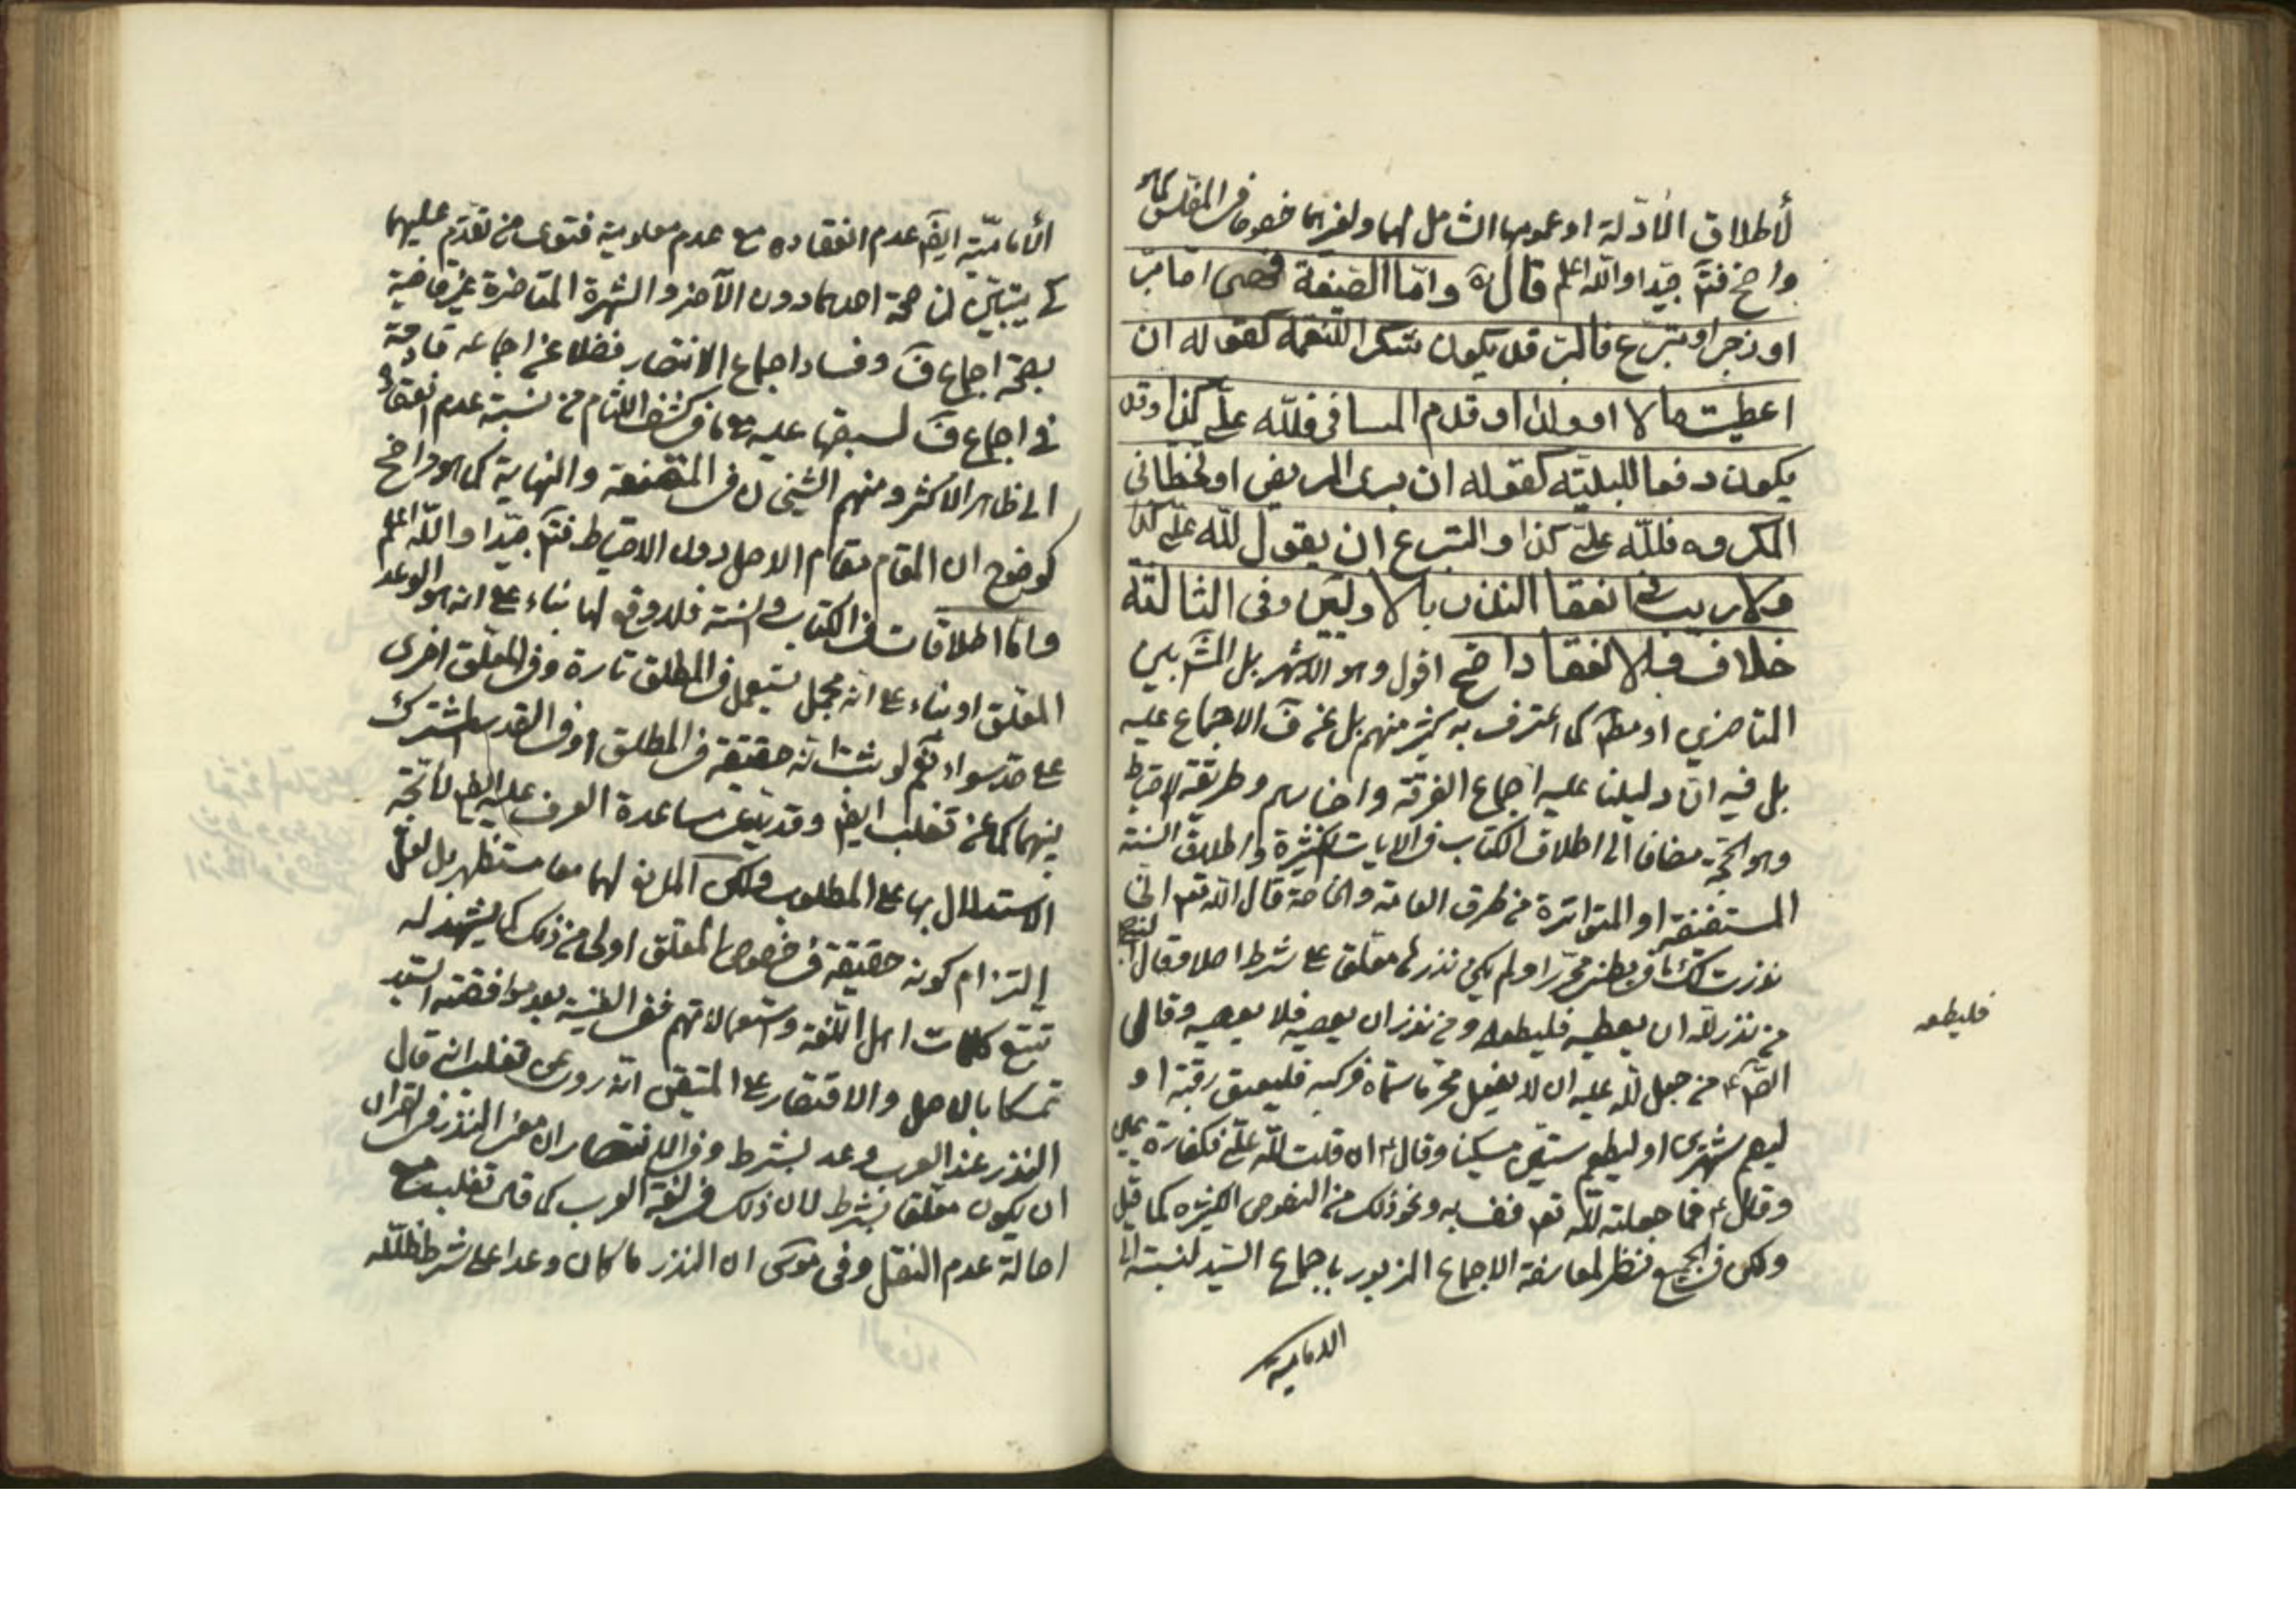 لأطلاق الادّلة او عمومها الشامل لهما ولغيرهما خصوصا في المفلّس كما هو
واضح فتم جيّدا والله اعلم قال ره وامّا الصّيغة فهى امّا برّ
او زجر او تبرّع فالبرّ قد يكون شكرا للنّعمة كقوله ان
اعطيت مالا او ولدا او قدم المسافر فللّه علىّ كذا وقد
يكون دفعا للبليّة كقوله ان برئ المريض او تخطّانى
المكروه فللّه علىّ كذا والتبرع ان يقول للّه علىّ كذا
ولا ريب فى انعقاد النذر بالاوليين وفى الثالثة
خلاف والانعقاد اصح اقول وهو الاشهر بل المش بين
المتاخرين او مط كما اعترف به كثير منهم بل عن ف الاجماع عليه
بل فيه ان دليلنا عليه اجماع الفرقة واخبارهم وطريقة الاحتياط
وهو الحجّة مضافا الى اطلاق الكتاب فى الايات الكثيرة واطلاق السّنة
المستفيضة او المتواترة من طرق العامّة والخاصة قال الله تعم انّى
نذرت لك ما فى بطنى محرّرا ولم يكن نذرها معلّق على شرط اصلا وقال النبى ص
من نذر للّه ان يطعيه فليطعه ومن نذر ان يعصيه فلا يعصيه وقال
الصّ ع من جعل للّه عليه ان لا يفعل محرّما سمّاه فركبه فليعتق رقبة او
ليصم شهرين او ليطعم ستّين مسكينا وقال ع ان قلت للّه علىّ فكفارة يمين
وقال ع فما جعلته للّه تعم فف به ونحو ذلك من النصوص الكثيره كما قيل
ولكن فى الجميع نظر لمعارضة الاجماع المزبور باجماع السّيد لنسبته الى
الاماميّة
فليطعه
الأماميّة ايضا عدم انعقاده مع عدم معلومية فتوى من تقدّم عليهما
كى يتبيّن لنا صحّة احدهما دون الآخر والشهرة المتاخرة غير قاضية
بصحّة اجماع ف وفساد اجماع الانتصار فضلا عن اجماعه قادحة
فى اجماع ف لسبقها عليه مع ما فى كشف اللّثام من نسبة عدم انعقاده
الى ظاهر الاكثر ومنهم الشيخان فى المقنعة والنهاية كما هو واضح
كوضوح ان المقام مقام الاصل دون الاحتياط فتم جيّدا والله اعلم
وامّا اطلاقات الكتاب والسّنة فلا وقع لها بناء على انه هو الوعد
المعلّق او بناء على انّه مجمل يستعمل فى المطلق تارة وفى المعلّق اخرى
على حدّ سواء نعم لو ثبت انّه حقيقة فى المطلق او فى القدر المشترك
بينهما كما عن تغلب ايضا وقد يدّعى مساعدة العرف عليه ايضا لأتّجه
الاستدلال بها على المطلوب ولكن المانع لهما معا مستظهر بل لعلّ
التزام كونه حقيقة فى خصوص المعلّق اولى من ذلك كما يشهد له
تتبّع كلمات اهل اللّغة واستعمالاتهم ففى الغنية بعد موافقته السّيد
تمسكا بالاصل والاقتصار على المتيقّن انّه روى عن تغلب انّه قال
النذر عند العرب وعد بشرط وفى الانتصار ان معنى النذر فى القران
ان يكون معلّقا بشرط لان ذلك فى لغة العرب كما قال تغلب مع
اصالة عدم النقل وفى موسى ان النذر ما كان وعدا على شرط فللّه